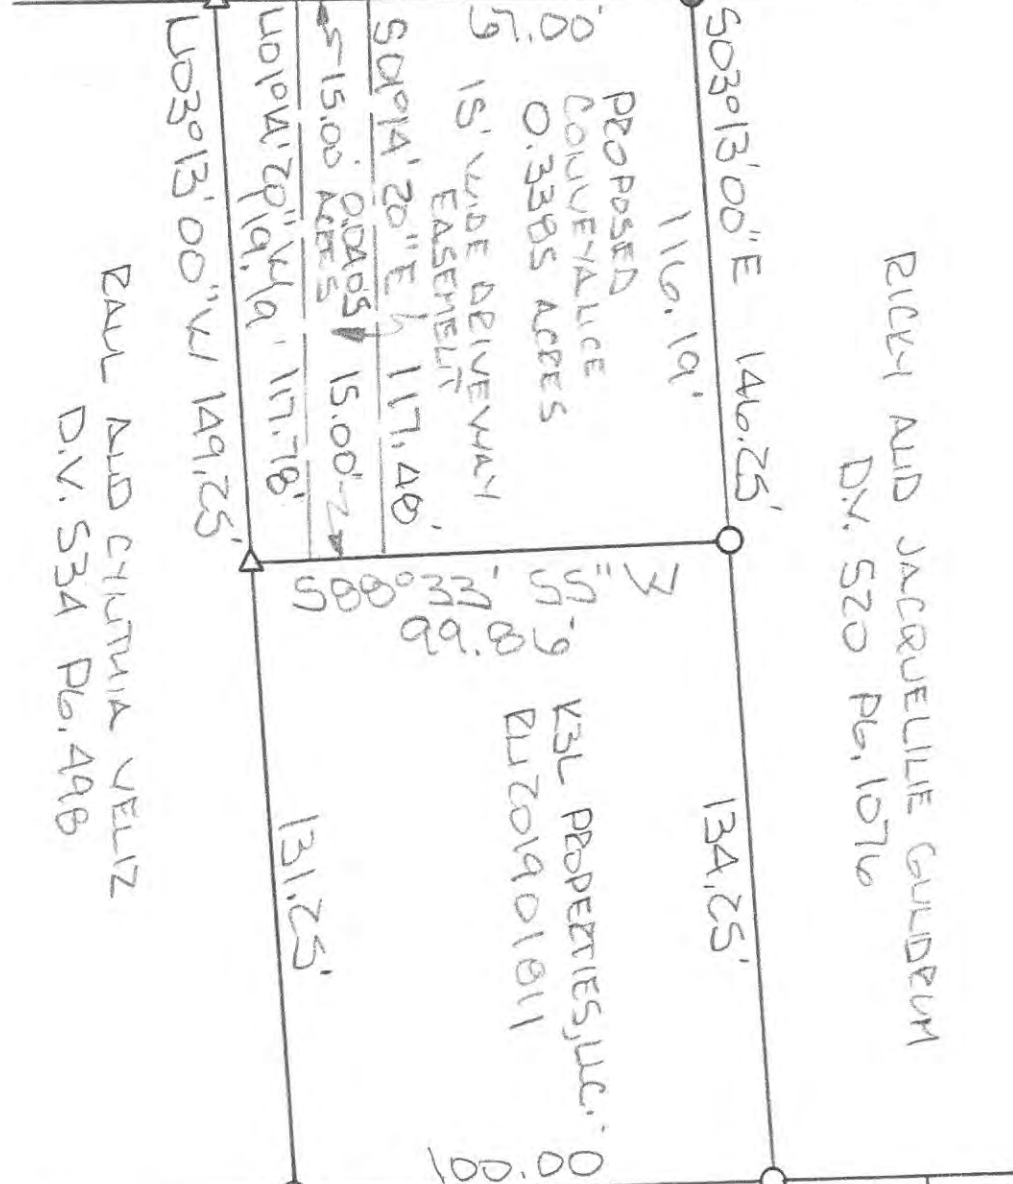 RICKY AND JACQUELINE GUNDRUM
D.V. 520 PG. 1076
S03°13'00"E 146.25'
116.19'
134.25'
PROPOSED
CONVEYANCE
0.3385 ACRES
15' WIDE DRIVEWAY
EASEMENT
S01°14'20"E 117.48'
15.00' 0.0405 15.00'
ACRES
N01°14'20"W 117.78'
119.19'
N03°13'00"W 149.25'
S88°33'55"W
99.86'
K3L PROPERTIES, LLC.
RN 201901811
100.00
131.25'
RAUL AND CYNTHIA VELIZ
D.V. 534 PG. 498